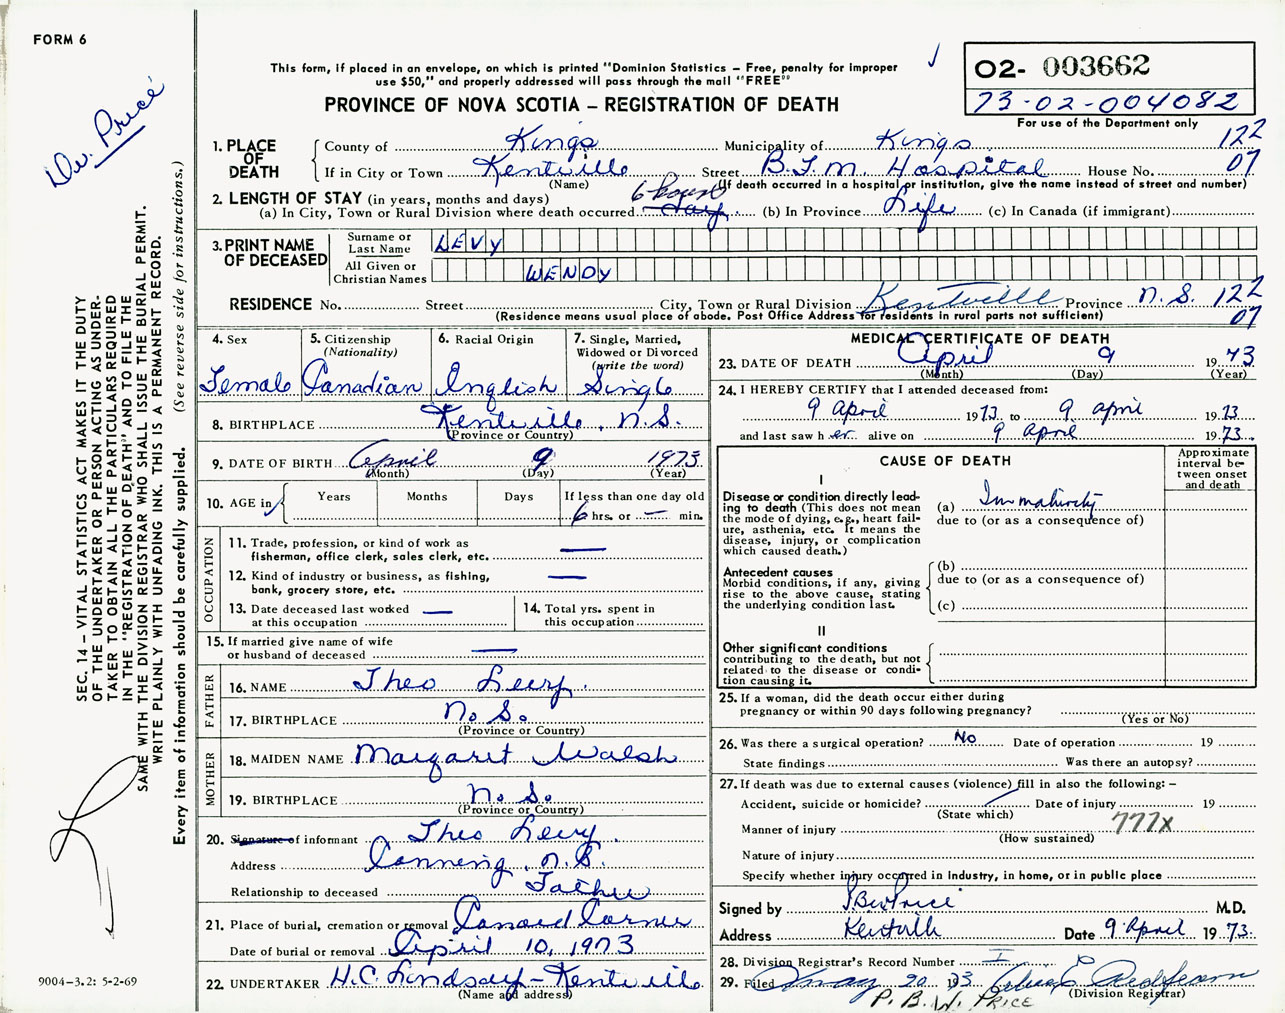 FORM 6
This form, if placed in an envelope, on which is printed "Dominion Statistics – Free, penalty for improper
use $50," and properly addressed will pass through the mail "FREE"
PROVINCE OF NOVA SCOTIA – REGISTRATION OF DEATH
O2- 003662
73-02-004082
For use of the Department only
Dr. Price
SEC. 14 – VITAL STATISTICS ACT MAKES IT THE DUTY
OF THE UNDERTAKER OR PERSON ACTING AS UNDER-
TAKER TO OBTAIN ALL THE PARTICULARS REQUIRED
IN THE "REGISTRATION OF DEATH" AND TO FILE THE
SAME WITH THE DIVISION REGISTRAR WHO SHALL ISSUE THE BURIAL PERMIT.
WRITE PLAINLY WITH UNFADING INK. THIS IS A PERMANENT RECORD.
Every item of information should be carefully supplied. (See reverse side for instructions.)
1. PLACE OF DEATH
County of Kings Municipality of Kings 122
If in City or Town Kentville Street B.F.M. Hospital House No. 07
(Name) (If death occurred in a hospital or institution, give the name instead of street and number)
2. LENGTH OF STAY (in years, months and days)
(a) In City, Town or Rural Division where death occurred 6 hours day (b) In Province Life (c) In Canada (if immigrant)
3. PRINT NAME OF DECEASED
Surname or Last Name LEVY
All Given or Christian Names WENDY
RESIDENCE No. Street City, Town or Rural Division Kentville Province N.S. 122
(Residence means usual place of abode. Post Office Address for residents in rural parts not sufficient) 07
4. Sex Female
5. Citizenship (Nationality) Canadian
6. Racial Origin English
7. Single, Married, Widowed or Divorced (write the word) Single
8. BIRTHPLACE Kentville, N.S.
(Province or Country)
9. DATE OF BIRTH April 9 1973
(Month) (Day) (Year)
10. AGE in Years Months Days If less than one day old
6 hrs. or — min.
OCCUPATION
11. Trade, profession, or kind of work as
fisherman, office clerk, sales clerk, etc. —
12. Kind of industry or business, as fishing,
bank, grocery store, etc. —
13. Date deceased last worked
at this occupation —
14. Total yrs. spent in
this occupation
15. If married give name of wife
or husband of deceased —
FATHER
16. NAME Theo Levy.
17. BIRTHPLACE N. S.
(Province or Country)
MOTHER
18. MAIDEN NAME Margaret Walsh
19. BIRTHPLACE N. S.
(Province or Country)
20. Signature of informant Theo Levy.
Address Canning, N.S.
Relationship to deceased Father
21. Place of burial, cremation or removal Canard Corner
Date of burial or removal April 10, 1973
22. UNDERTAKER H.C. Lindsay – Kentville
(Name and address)
9004–3.2: 5-2-69
MEDICAL CERTIFICATE OF DEATH
23. DATE OF DEATH April 9 1973
(Month) (Day) (Year)
24. I HEREBY CERTIFY that I attended deceased from:
9 April 1973 to 9 April 1973
and last saw her alive on 9 April 1973
CAUSE OF DEATH
Approximate interval between onset and death
I
Disease or condition directly lead-
ing to death (This does not mean
the mode of dying, e.g., heart fail-
ure, asthenia, etc. It means the
disease, injury, or complication
which caused death.)
(a) Immaturity
due to (or as a consequence of)
Antecedent causes
Morbid conditions, if any, giving
rise to the above cause, stating
the underlying condition last.
(b)
due to (or as a consequence of)
(c)
II
Other significant conditions
contributing to the death, but not
related to the disease or condi-
tion causing it.
25. If a woman, did the death occur either during
pregnancy or within 90 days following pregnancy?
(Yes or No)
26. Was there a surgical operation? No Date of operation 19
State findings Was there an autopsy?
27. If death was due to external causes (violence) fill in also the following: –
Accident, suicide or homicide? Date of injury 19
(State which)
Manner of injury 777X
(How sustained)
Nature of injury
Specify whether injury occurred in industry, in home, or in public place
Signed by P.B.W. Price M.D.
Address Kentville Date 9 April 1973
28. Division Registrar's Record Number
29. Filed May 20 1973
(Division Registrar)
P. B. W. PRICE